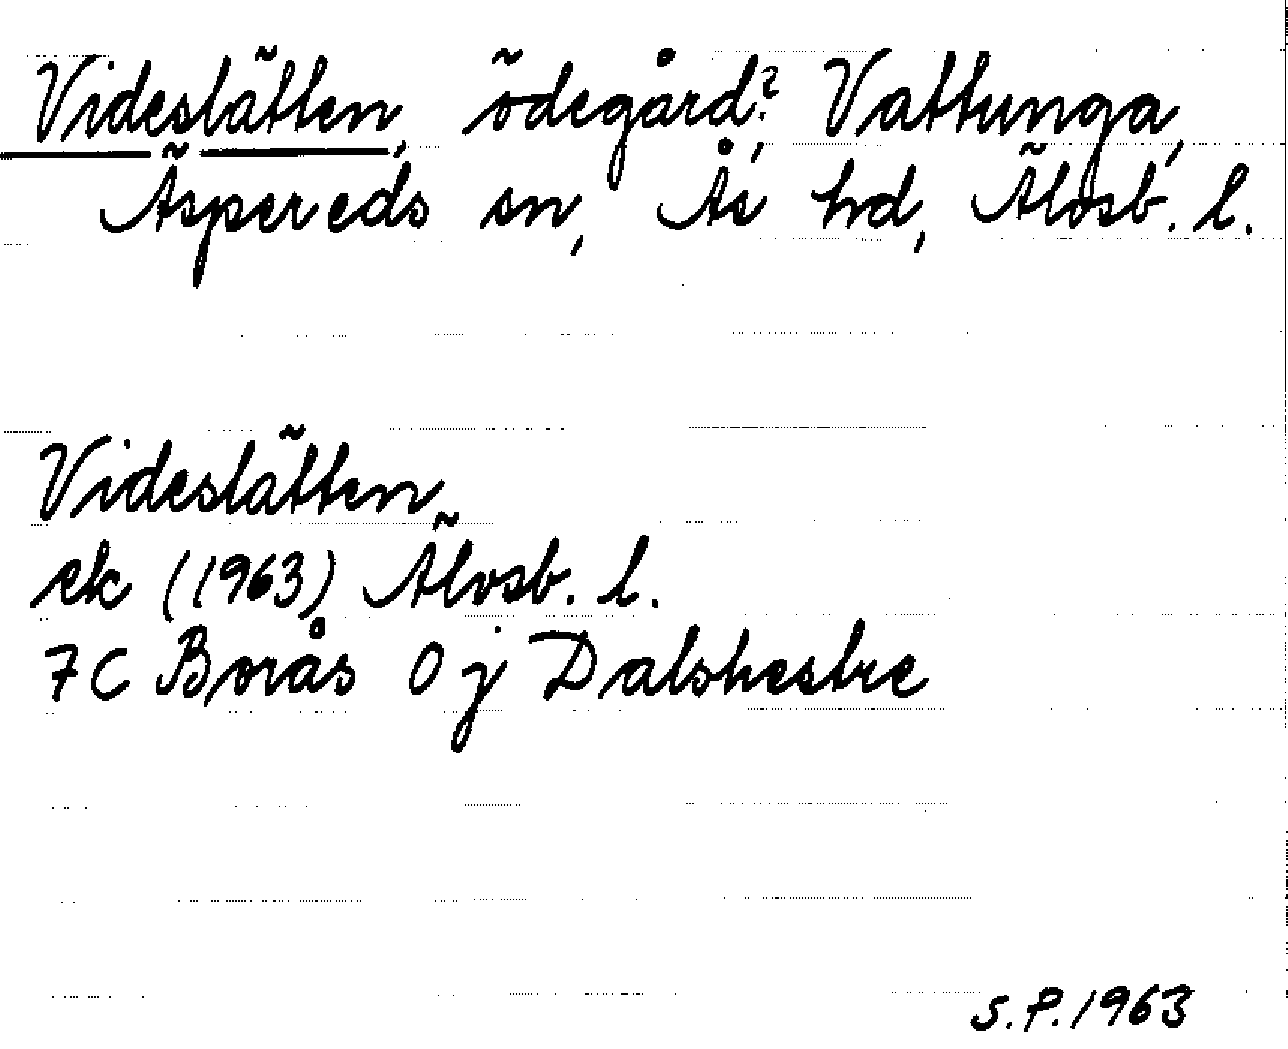 Videslätten, ödegård?, Vattunga,
Äspereds sn, Ås hd, Älvsb. l.
Videslätten
ek (1963) Älvsb. l.
7C Borås 0 j Dalshestre
S.P. 1963